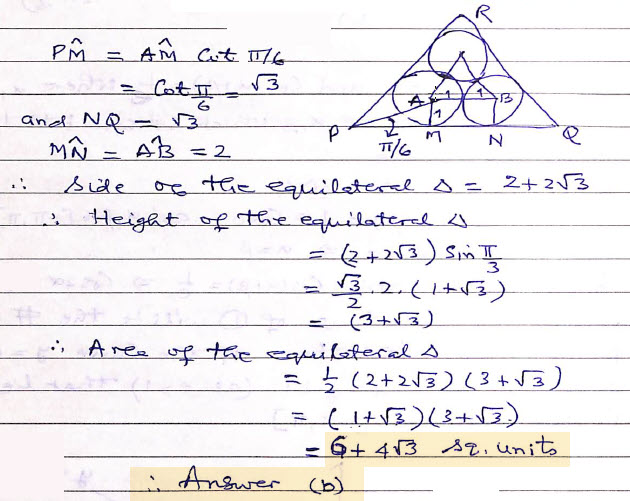 R
PM̂ = AM̂ Cot π/6
= Cot π/6 = √3
and NQ = √3
MN̂ = AB̂ = 2
A 1 1 B
1
P M N Q
π/6
∴ Side of the equilateral Δ = 2+2√3
∴ Height of the equilateral Δ
= (2+2√3) Sin π/3
= √3/2 . 2 . (1+√3)
= (3+√3)
∴ Area of the equilateral Δ
= 1/2 (2+2√3) (3+√3)
= (1+√3) (3+√3)
= 6+4√3 sq. units
∴ Answer (b)